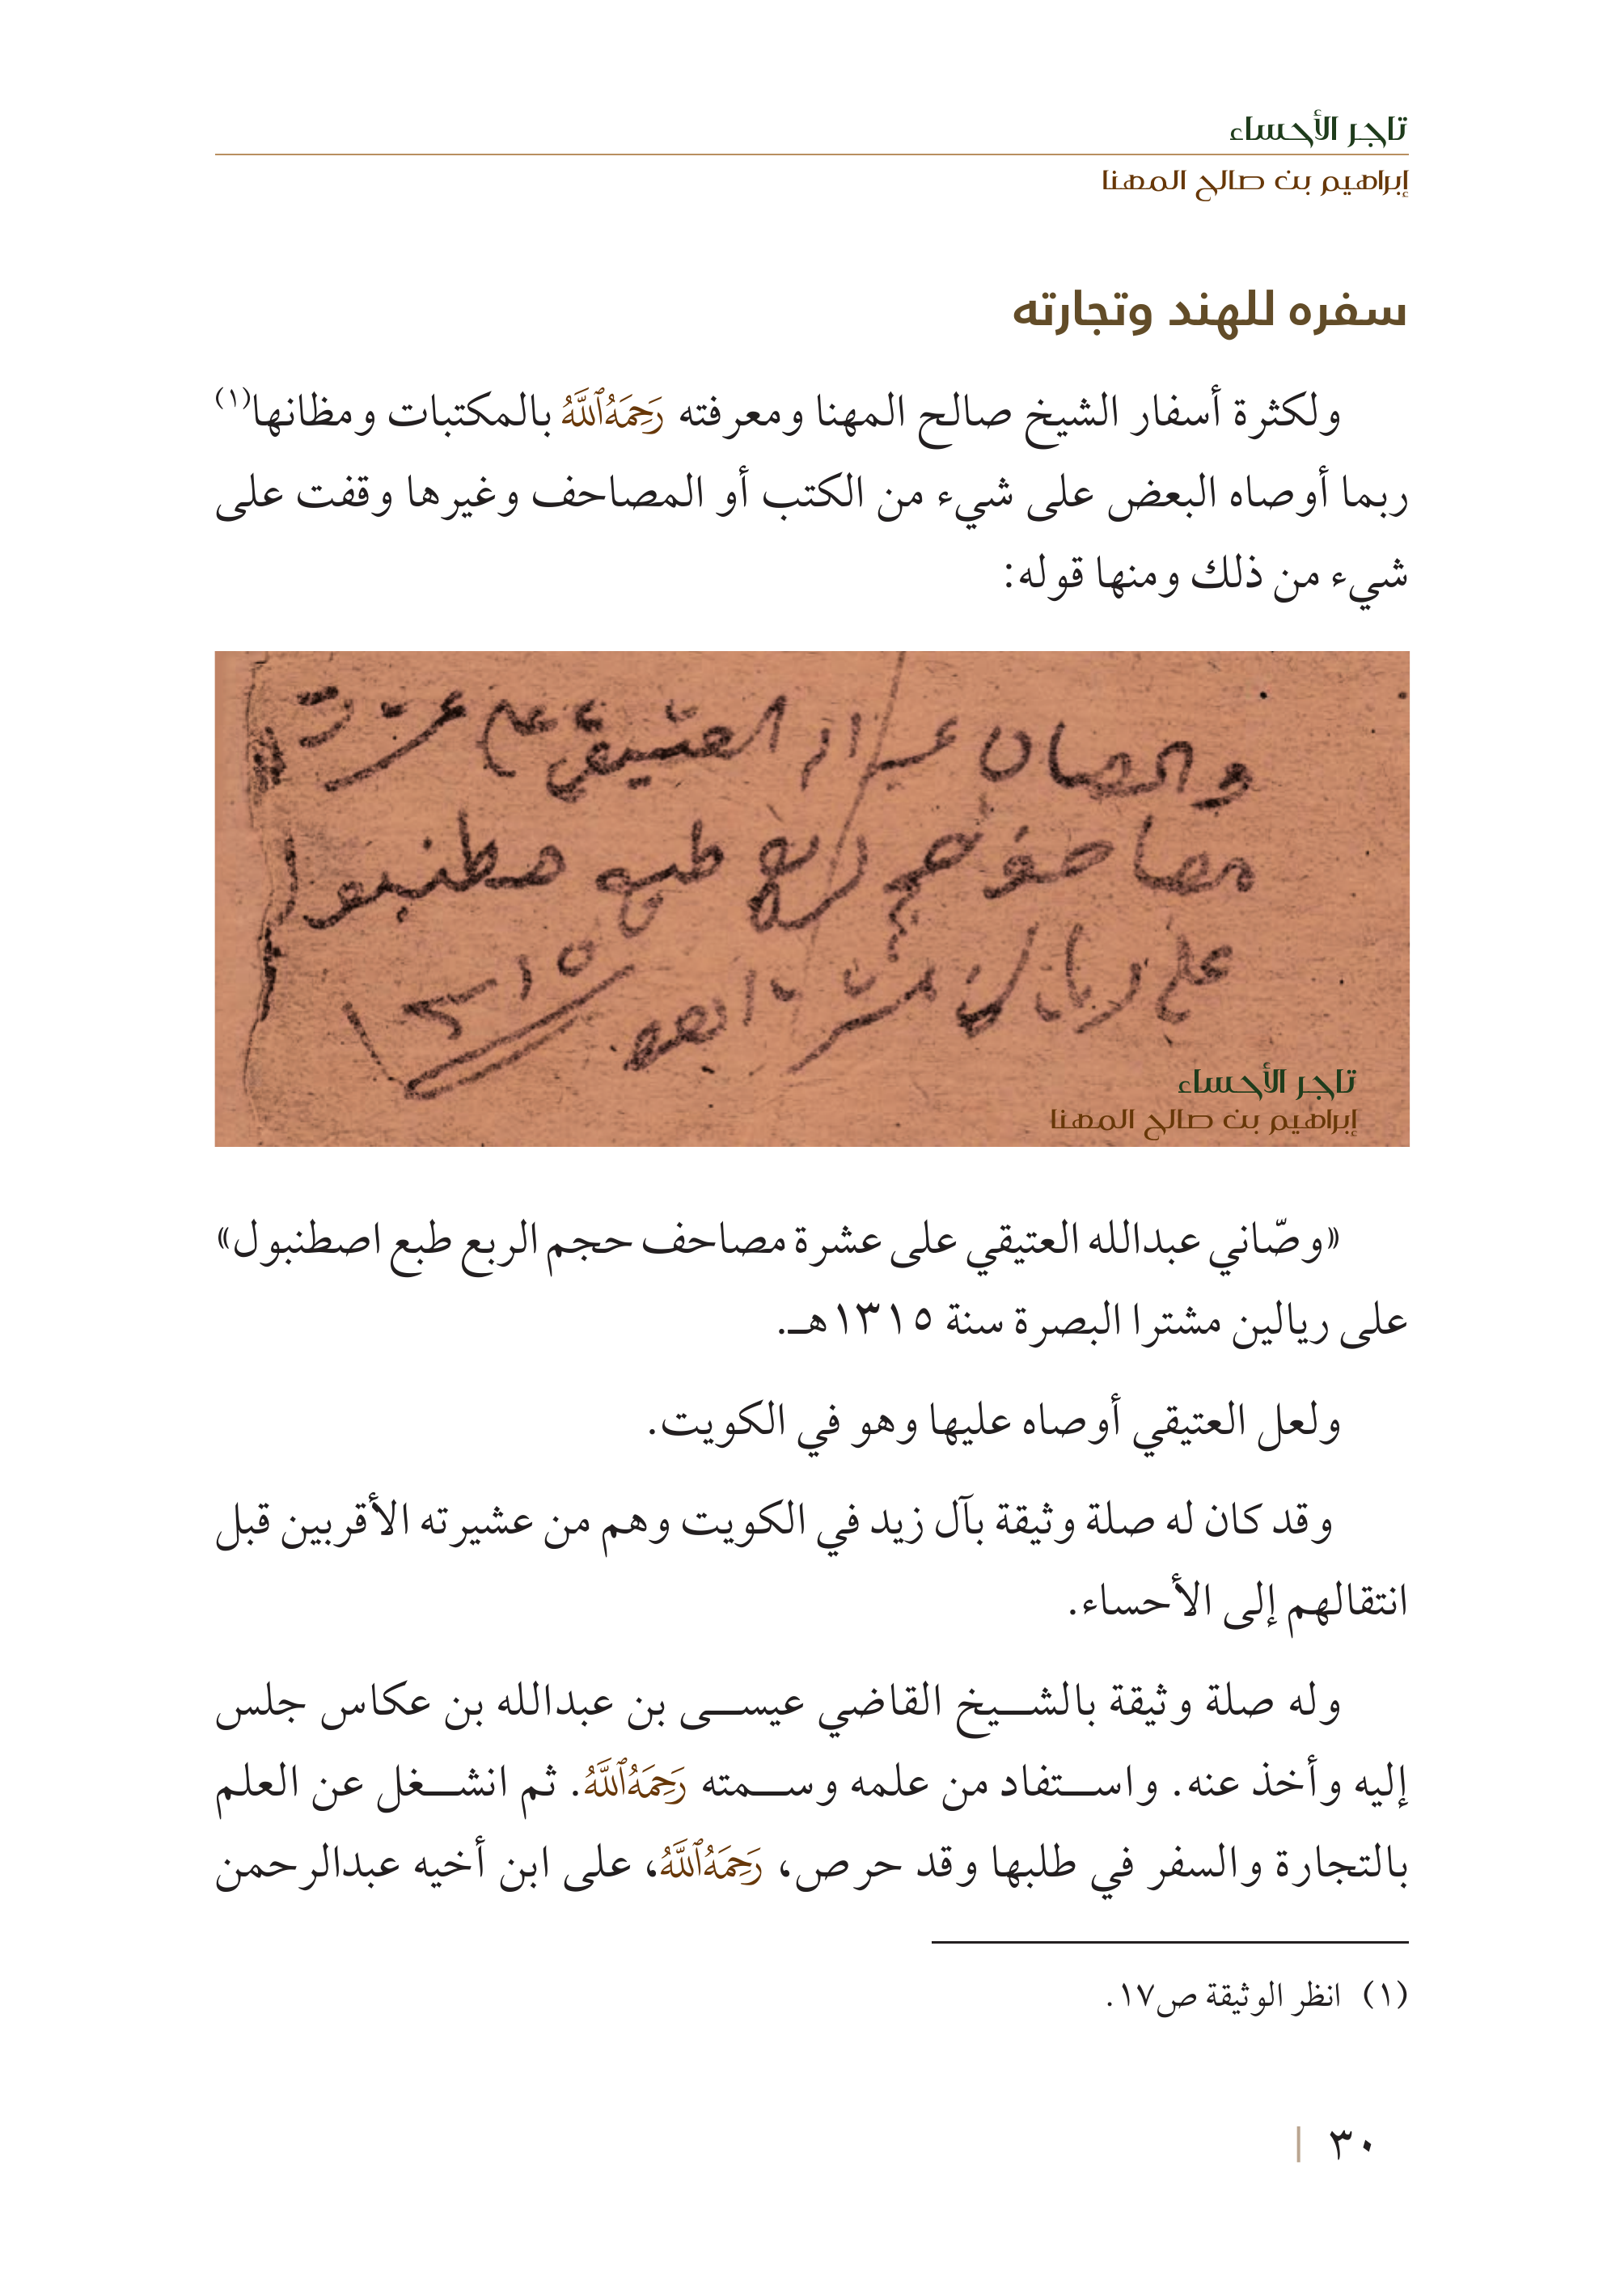 تاجر الأحساء
إبراهيم بن صالح المهنا
سفره للهند وتجارته
ولكثرة أسفار الشيخ صالح المهنا ومعرفته رَحِمَهُ ٱللَّهُ بالمكتبات ومظانها(١)
ربما أوصاه البعض على شيء من الكتب أو المصاحف وغيرها وقفت على
شيء من ذلك ومنها قوله:
العتيقي على
مصاحف حجم ربع طبع صطنبول
على ريالين مشترا ١٣١٥
تاجر الأحساء
إبراهيم بن صالح المهنا
«وصّاني عبدالله العتيقي على عشرة مصاحف حجم الربع طبع اصطنبول»
على ريالين مشترا البصرة سنة ١٣١٥هـ.
ولعل العتيقي أوصاه عليها وهو في الكويت.
وقد كان له صلة وثيقة بآل زيد في الكويت وهم من عشيرته الأقربين قبل
انتقالهم إلى الأحساء.
وله صلة وثيقة بالشيخ القاضي عيسى بن عبدالله بن عكاس جلس
إليه وأخذ عنه. واستفاد من علمه وسمته رَحِمَهُ ٱللَّهُ. ثم انشغل عن العلم
بالتجارة والسفر في طلبها وقد حرص، رَحِمَهُ ٱللَّهُ، على ابن أخيه عبدالرحمن
(١) انظر الوثيقة ص١٧.
٣٠ |